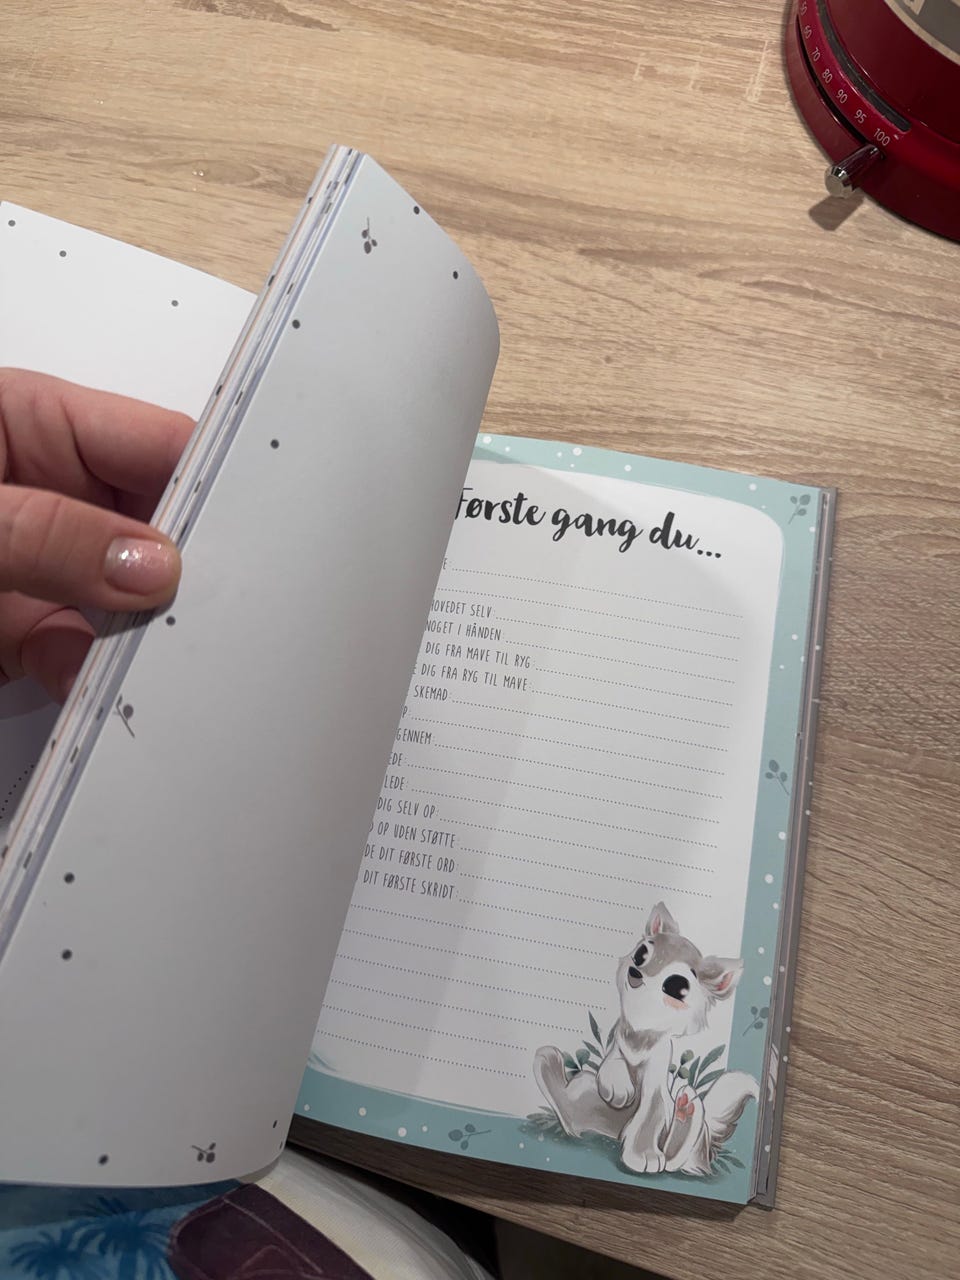 Første gang du...
HOVEDET SELV:
NOGET I HÅNDEN:
DIG FRA MAVE TIL RYG:
DIG FRA RYG TIL MAVE:
SKEMAD:
GENNEM:
LEDE:
DIG SELV OP:
OP UDEN STØTTE:
DIT FØRSTE ORD:
DIT FØRSTE SKRIDT:
50
60
70
80
90
95
100